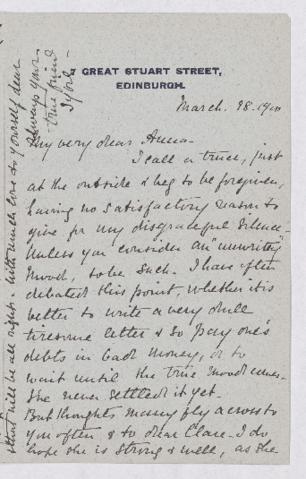 7 GREAT STUART STREET,
EDINBURGH.
March. 18. 1910
My very dear Anna –
I call a truce, just
at the outside & beg to be forgiven,
having no satisfactory reason to
give for my disgraceful silence –
unless you consider an "unwriting"
mood, to be such. I have often
debated this point, whether it is
better to write a very dull
tiresome letter & so pay one's
debts in bad money, or to
wait until the true mood comes –
& he never settled it yet.
But thoughts many fly across to
you often & to dear Clare – I do
hope she is strong & well, as she
& that will be all right. With much love to yourself dear
Always your
true friend